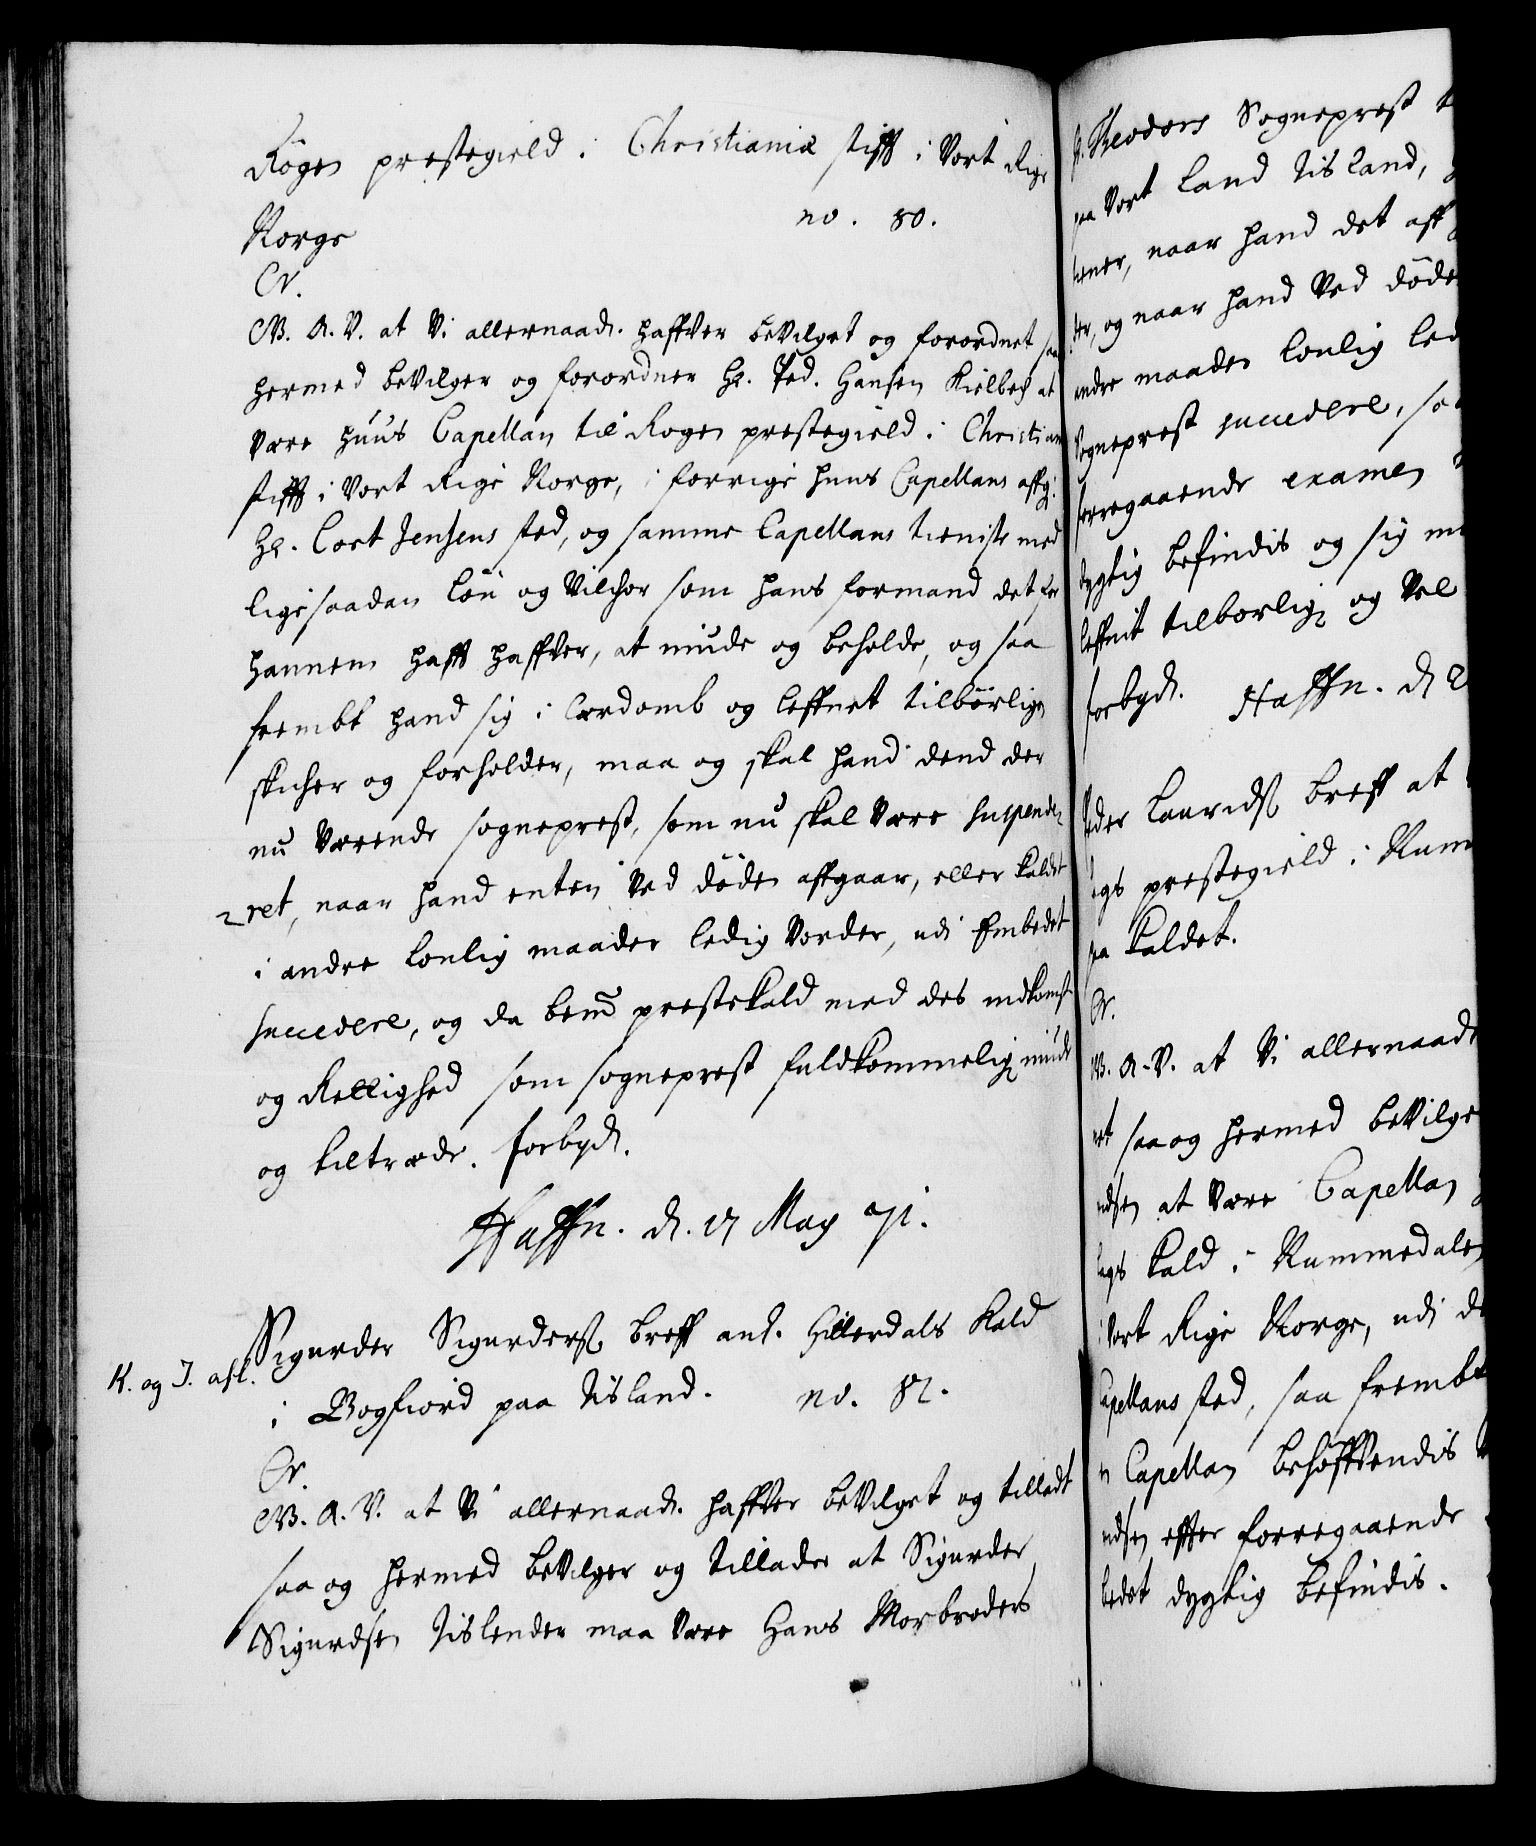 Rogen prestegield i Christianiæ stifft i Vort Rige
Norge no. 80.
Cr.
G. A. V. at Vi allernaad. haffver beVilget og forordnet saa
hermed beVilger og forordner Hr. Ped. Hansen Kielbech at
være huus Capellan til Rogen prestegield i Christiani
stifft i Vort Rige Norge, i forrige huus Capellans affg.
Hr. Cort Jensens sted, og samme Capellans tieniste med
ligesaadan Lön og Vilchor som hans formand det for
hannem hafft haffver, at niude og beholde, og saa
frembt hand sig i Lærdomb og leffnet tilbörligen
skicher og forholder, maa og skal hand dend der
nu værende sogneprest, som nu skal være suspende-
ret, naar hand enten Ved döden affgaar, eller kaldet
i andre lovlig maader ledig Vorder, udi Embedet
succedere, og da bemt prestekald med des indkomst
og Rettighed som sogneprest fuldkommelig niude
og tiltræde. forbyd.
Haffn. d. 17 May 71.
K. og I. afl.
Sigurder Sigurders. breff ant. Hitterdals Kald
i Bogfiord paa Iisland. no. 81.
Cr.
G. A. V. at Vi allernaad. haffver beVilget og tilladt
saa og hermed beVilger og tillader at Sigurder
Sigurdsen Iislender maa være Hans Morbroders
Hr. Theodors Sogneprest t
paa Vort Land Iisland,
iener, naar hand det aff
ter, og naar hand Ved döde
andre maader lovlig led
Sogneprest succedere, saa
forregaaende examen
dygtig befindis og sig m
leffnit tilborlig og Vel
forbyd. Haffn. d 2
Peder Lauridss. breff at
ags prestegield i Rum
paa kaldet.
Cr.
G. A. V. at Vi allernaad
net saa og hermed beVilge
udsen at være Capellan
lags kald i Rummedalen
i Vort Rige Norge, udi d
Capellans sted, saa frembt
n Capellan behöffvendis
udsen effter forregaaende
bedet dygtig befindis.